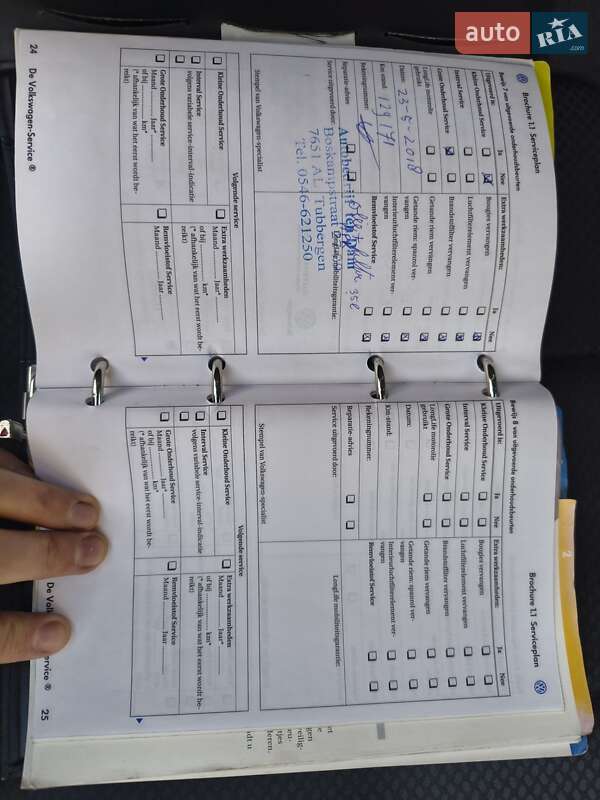 auto RIA .com
Brochure 1.1 Serviceplan
Bewijs 7 van uitgevoerde onderhoudsbeurten
Uitgevoerd is: Ja Nee
Kleine Onderhoud Service
Interval Service
Grote Onderhoud Service
LongLife motorolie gebruikt
Datum: 23-5-2018
Km-stand: 129171
Rekeningnummer:
Reparatie-advies
Service uitgevoerd door:
Autobedrijf
Boskampstraat
7651 AL Tubbergen
Tel. 0546-621250
Stempel van Volkswagen-specialist
Extra werkzaamheden: Ja Nee
Bougies vervangen
Luchtfilterelement vervangen
Brandstoffilter vervangen
Getande riem vervangen
Getande riem: spanrol ver-
vangen
Interieurluchtfilterelement ver-
vangen
Remvloeistof Service
LongLife mobiliteitsgarantie:
Volgende service
Kleine Onderhoud Service
Interval Service
volgens variabele service-interval-indicatie
Grote Onderhoud Service
Maand Jaar*
of bij km*
(* afhankelijk van wat het eerst wordt be-
reikt)
Extra werkzaamheden
Maand Jaar*
of bij km*
(* afhankelijk van wat het eerst wordt be-
reikt)
Remvloeistof Service
Maand Jaar
24 De Volkswagen-Service ®
Brochure 1.1 Serviceplan
Bewijs 8 van uitgevoerde onderhoudsbeurten
Uitgevoerd is: Ja Nee
Kleine Onderhoud Service
Interval Service
Grote Onderhoud Service
LongLife motorolie
gebruikt
Datum:
Km-stand:
Rekeningnummer:
Reparatie-advies
Service uitgevoerd door:
Stempel van Volkswagen-specialist
Extra werkzaamheden: Ja Nee
Bougies vervangen
Luchtfilterelement vervangen
Brandstoffilter vervangen
Getande riem vervangen
Getande riem: spanrol ver-
vangen
Interieurluchtfilterelement ver-
vangen
Remvloeistof Service
LongLife mobiliteitsgarantie:
Volgende service
Kleine Onderhoud Service
Interval Service
volgens variabele service-interval-indicatie
Grote Onderhoud Service
Maand Jaar*
of bij km*
(* afhankelijk van wat het eerst wordt be-
reikt)
Extra werkzaamheden
Maand Jaar*
of bij km*
(* afhankelijk van wat het eerst wordt be-
reikt)
Remvloeistof Service
Maand Jaar
De Volk ervice ® 25
2